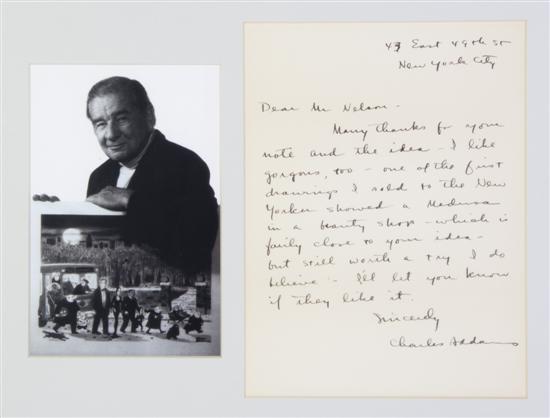 43 East 49th St
New York City
Dear Mr Nelson -
Many thanks for your
note and the idea - I like
gorgons, too - one of the first
drawings I sold to the New
Yorker showed a Medusa
in a beauty shop - which is
fairly close to your idea -
but still worth a try I do
believe - I'll let you know
if they like it.
Sincerely
Charles Addams